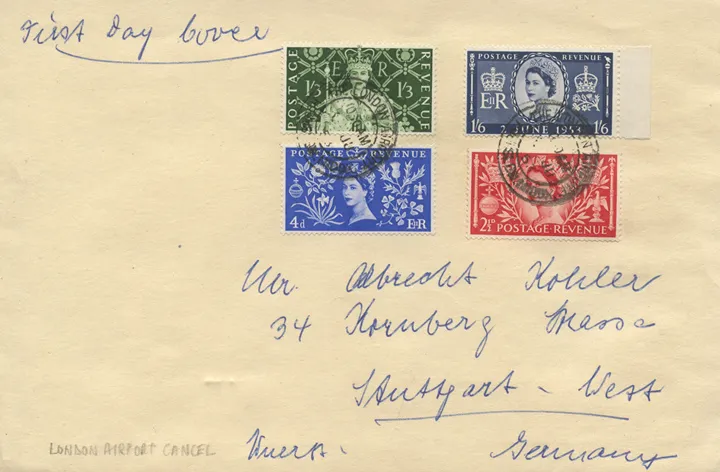 First Day Cover
POSTAGE REVENUE
E R
1/3 1/3
POSTAGE REVENUE
E II R
1/6 2 JUNE 1953 1/6
POSTAGE REVENUE
4d E II R
2½D POSTAGE REVENUE
LONDON AIRPORT
LONDON AIRPORT
Mr. Albrecht Kohler
34 Hornberg Strasse
Stuttgart - West
LONDON AIRPORT CANCEL
Germany